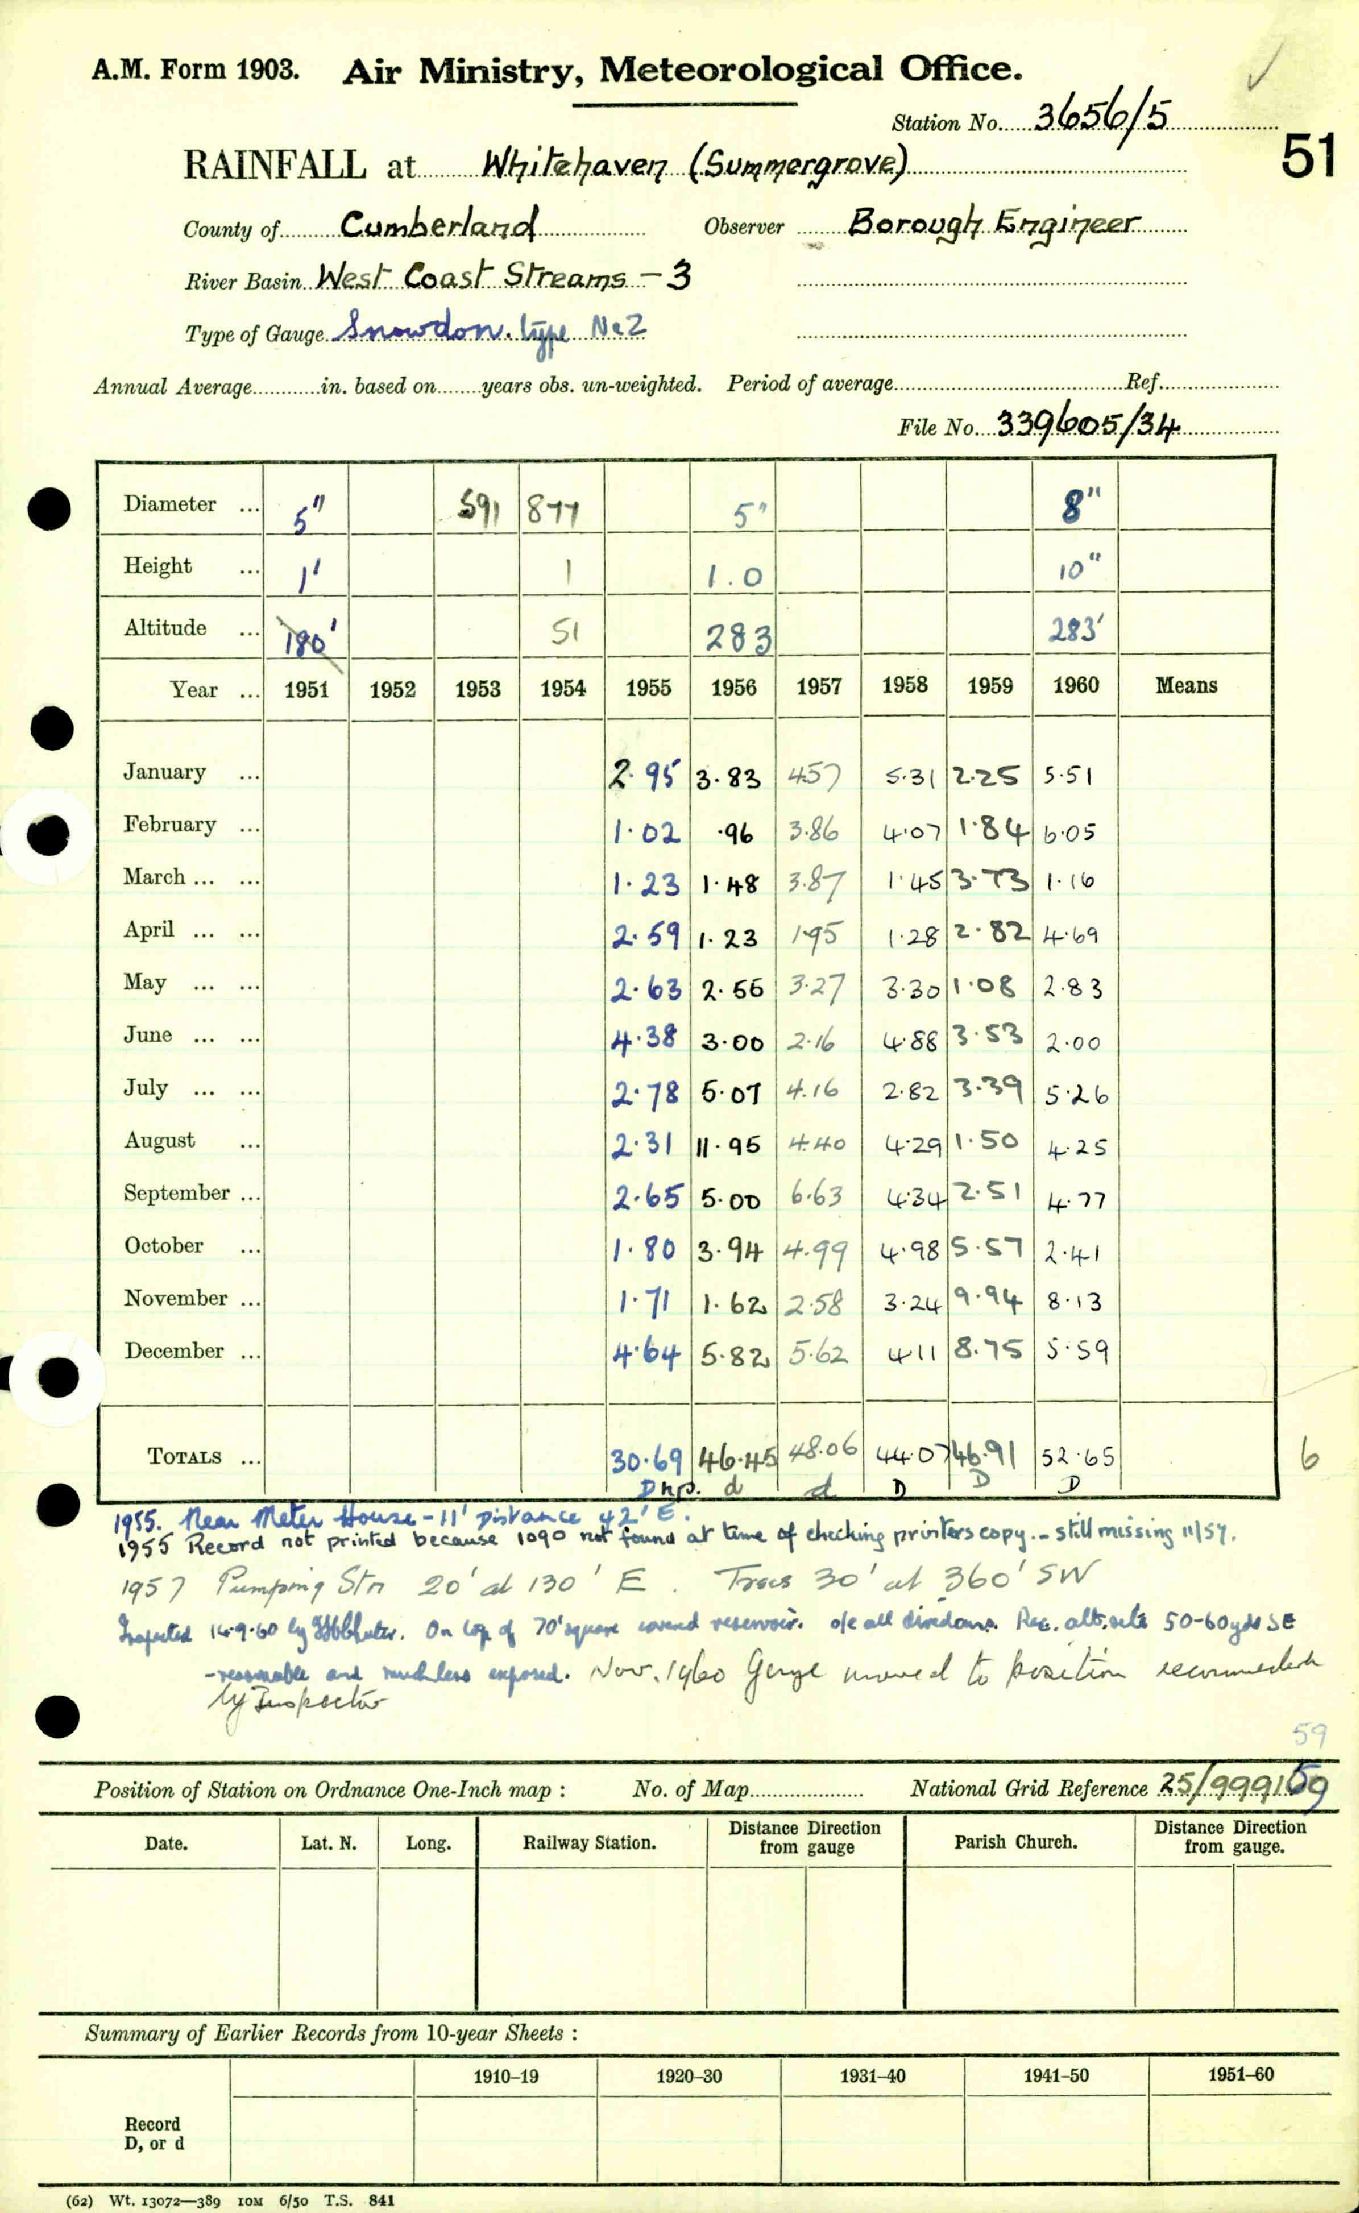 A.M. Form 1903. Air Ministry, Meteorological Office.
Station No. 3656/5
51
RAINFALL at Whitehaven (Summergrove)
County of Cumberland Observer Borough Engineer
River Basin West Coast Streams - 3
Type of Gauge Snowdon. type No 2
Annual Average in. based on years obs. un-weighted. Period of average Ref.
File No. 339605/34
Diameter ... 5" 591 877 5" 8"
Height ... 1' 1 1.0 10"
Altitude ... 180' 51 283 283'
Year ... 1951 1952 1953 1954 1955 1956 1957 1958 1959 1960 Means
January ... 2.95 3.83 4.57 5.31 2.25 5.51
February ... 1.02 .96 3.86 4.07 1.84 6.05
March ... ... 1.23 1.48 3.87 1.45 3.73 1.16
April ... ... 2.59 1.23 1.95 1.28 2.82 4.69
May ... ... 2.63 2.55 3.27 3.30 1.08 2.83
June ... ... 4.38 3.00 2.16 4.88 3.53 2.00
July ... ... 2.78 5.07 4.16 2.82 3.39 5.26
August ... 2.31 11.95 4.40 4.29 1.50 4.25
September ... 2.65 5.00 6.63 4.34 2.51 4.77
October ... 1.80 3.94 4.99 4.98 5.57 2.41
November ... 1.71 1.62 2.58 3.24 9.94 8.13
December ... 4.64 5.82 5.62 4.11 8.75 5.59
TOTALS ... 30.69 46.45 48.06 44.07 46.91 52.65
6
Dnp. d d D D D
1955. Near Meter House - 11' Distance 42' E.
1955 Record not printed because 1090 not found at time of checking printers copy. - still missing 11/57.
1957 Pumping Stn 20' at 130' E. Trees 30' at 360' SW
Inspected 14.9.60 by On top of 70' square covered reservoir. o/e all directions. Rec. alt. site 50-60yds SE
- reasonable and much less exposed. Nov. 1960 Gauge moved to position recommended
by Inspector
59
Position of Station on Ordnance One-Inch map : No. of Map National Grid Reference 25/999159
Date. Lat. N. Long. Railway Station. Distance from Direction gauge Parish Church. Distance from Direction gauge.
Summary of Earlier Records from 10-year Sheets :
1910-19 1920-30 1931-40 1941-50 1951-60
Record
D, or d
(62) Wt. 13072—389 10M 6/50 T.S. 841